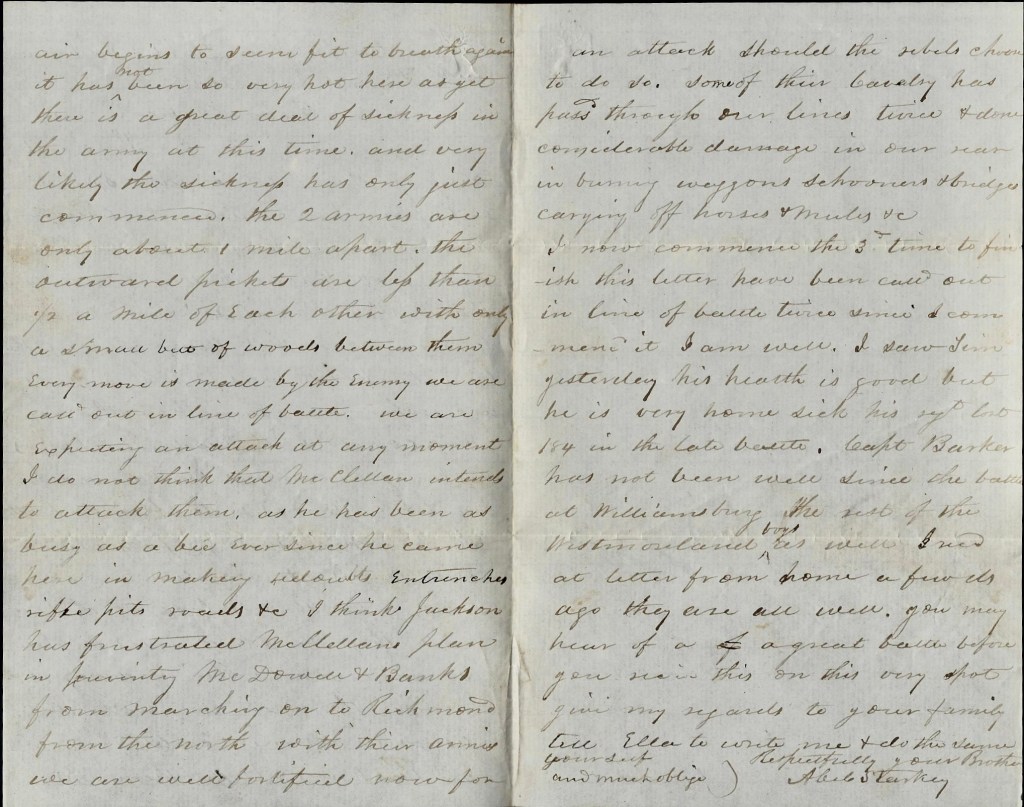 air begins to seem fit to breath again
it has not been so very hot here as yet
there is a great deal of sickness in
the army at this time. and very
likely the sickness has only just
commenced. the 2 armies are
only about 1 mile apart. the
outward pickets are less than
1/2 a mile of Each other with only
a small belt of woods between them
Every move is made by the Enemy we are
calld out in line of battle. we are
Expecting an attack at any moment
I do not think that McClellan intends
to attack them. as he has been as
busy as a bee Ever since he came
here in making redoubts Entrenches
rifle pits roads &c I think Jackson
has frustrated McClellans plan
in McDowell & Banks
from marching on to Richmond
from the north with their armies
we are well fortified now for
an attack should the rebels choose
to do so. some of their Cavalry has
passd through our lines twice & done
considerable damage in our rear
in burning waggons schooners & bridges
carying off horses & mules &c
I now commence the 3rd time to fin
-ish this letter have been calld out
in line of battle twice since I com
-mencd it I am well. I saw Tim
yesterday his health is good but
he is very home sick his regt lost
184 in the late battle. Capt Barker
has not been well since the battle
at Williamsburg The rest of the
Westmoreland boys well I recd
at letter from home a few ds
ago they are all well. you may
hear of a a great battle before
you recive this on this very spot
give my regards to your family
tell Ella to write me & do the same
yourself
and much oblige
Respectfully your Brother
Abel Starkey